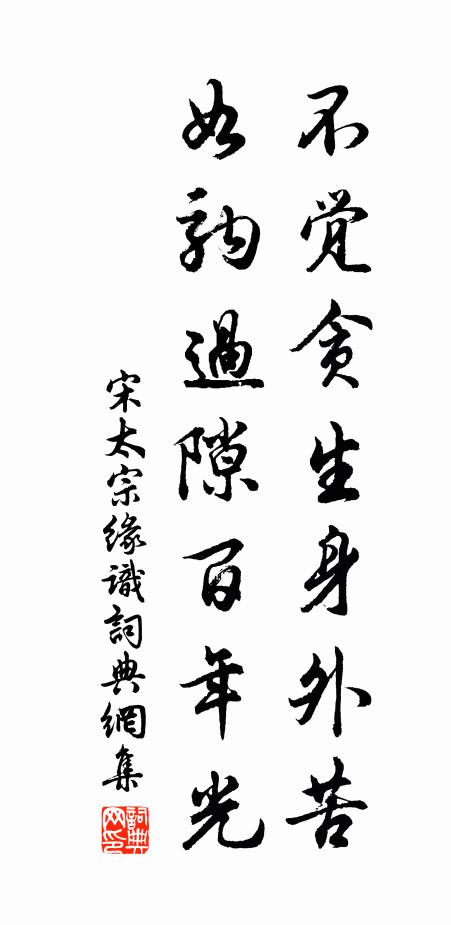 不觉贪生身外苦
如驹過隙百年光
宋太宗緣識詞典網集
詞典网印